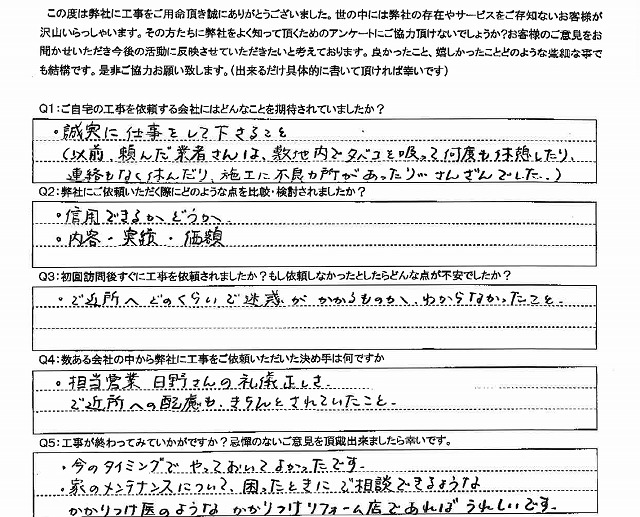 この度は弊社に工事をご用命頂き誠にありがとうございました。世の中には弊社の存在やサービスをご存知ないお客様が
沢山いらっしゃいます。その方たちに弊社をよく知って頂くためのアンケートにご協力頂けないでしょうか？お客様のご意見をお
聞かせいただき今後の活動に反映させていただきたいと考えております。良かったこと、嬉しかったことどのような些細な事で
も結構です。是非ご協力お願い致します。（出来るだけ具体的に書いて頂ければ幸いです）
Q1：ご自宅の工事を依頼する会社にはどんなことを期待されていましたか？
・誠実に仕事をして下さること
（以前、頼んだ業者さんは、敷地内でタバコを吸って何度も休憩したり、
連絡もなく休んだり、施工に不良カ所があったり…さんざんでした..）
Q2：弊社にご依頼いただく際にどのような点を比較・検討されましたか？
・信用できるかどうか。
・内容・実績・価額
Q3：初回訪問後すぐに工事を依頼されましたか？もし依頼しなかったとしたらどんな点が不安でしたか？
・ご近所へどのくらいご迷惑がかかるものか、わからなかったこと。
Q4：数ある会社の中から弊社に工事をご依頼いただいた決め手は何ですか
・担当営業 日野さんの礼儀正しさ。
ご近所への配慮も、きちんとされていたこと。
Q5：工事が終わってみていかがですか？忌憚のないご意見を頂戴出来ましたら幸いです。
・今のタイミングでやっておいてよかったです。
・家のメンテナンスについて、困ったときにご相談できるような
かかりつけ医のようなかかりつけリフォーム店であればうれしいです。